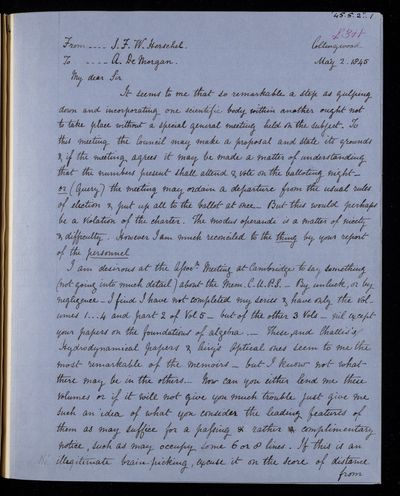 '45.5.2. 1
L311
From ---- J. F. W. Herschel. Collingwood
To ---- A. De Morgan. May 2. 1845
My dear Sir
It seems to me that so remarkable a step as gulping
down and incorporating one scientific body within another ought not
to take place without a special general meeting held on the subject. To
this meeting the Council may make a proposal and state its grounds
& if the meeting agrees it may be made a matter of understanding
that the numbers present shall attend & vote on the balloting night -
or (Query) the meeting may ordain a departure from the usual rules
of election & put up all to the ballot at once - But this would perhaps
be a violation of the charter. The modus operandi is a matter of nicety
& difficulty. However I am much reconciled to the thing by your report
of the personnel
I am desirous at the Assocn Meeting at Cambridge to say something
(not going into much detail) about the Mem. C.U.P.S. - By unluck, or by
negligence - I find I have not completed my series & have only the Vol-
umes 1...4 and part 2 of Vol 5 - but of the other 3 Vols - nil except
your papers on the foundations of algebra. - These, and Challis's
Hydrodynamical papers & Airy's Optical ones seem to me the
most remarkable of the memoirs - but I know not what
there may be in the others. Now can you either lend me these
volumes or if it will not give you much trouble just give me
such an idea of what you consider the leading features of
them as may suffice for a passing & rather a complimentary
notice, such as may occupy some 6 or 8 lines. If this is an
illegitimate brain-picking, excuse it on the score of distance
from